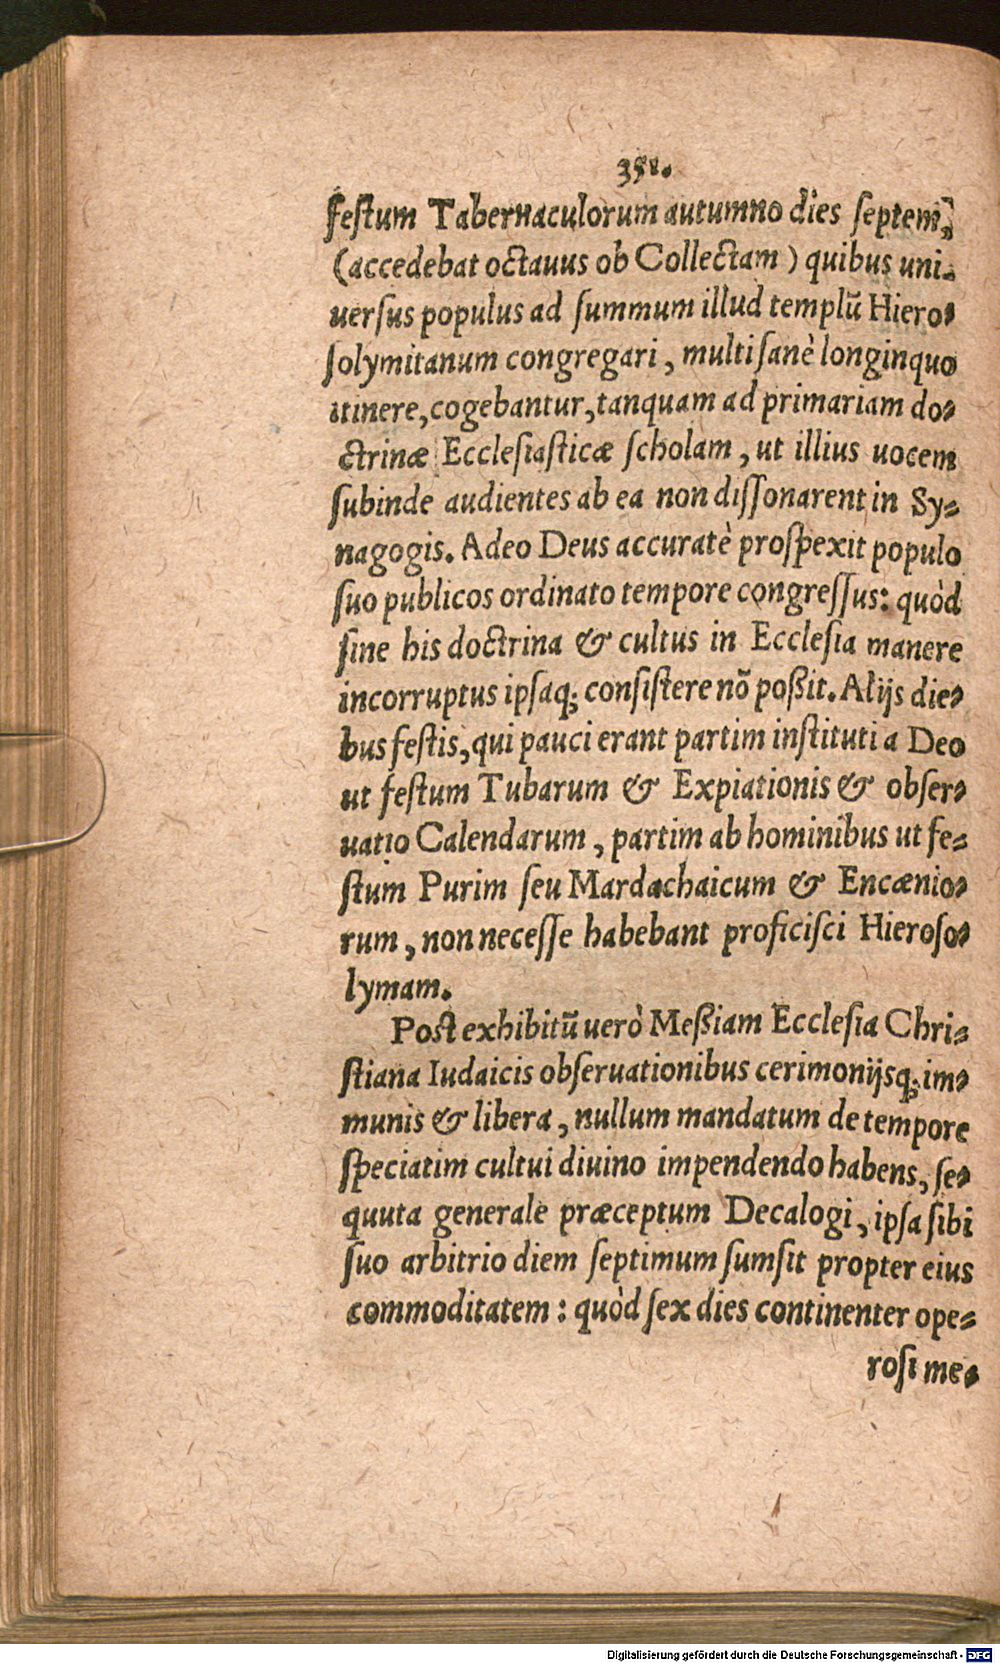 358.
festum Tabernaculorum autumno dies septem,
(accedebat octauus ob Collectam) quibus uni-
uersus populus ad summum illud templũ Hiero-
solymitanum congregari, multi sanè longinquo
itinere, cogebantur, tanquam ad primariam do-
ctrinæ Ecclesiasticæ scholam, ut illius uocem
subinde audientes ab ea non dissonarent in Sy-
nagogis. Adeo Deus accuratè prospexit populo
suo publicos ordinato tempore congressus: quòd
sine his doctrina & cultus in Ecclesia manere
incorruptus ipsaq; consistere nõ poßit. Alijs die-
bus festis, qui pauci erant partim instituti a Deo
ut festum Tubarum & Expiationis & obser-
uatio Calendarum, partim ab hominibus ut fe-
stum Purim seu Mardachaicum & Encænio-
rum, non necesse habebant proficisci Hieroso-
lymam.
Post exhibitũ uerò Meßiam Ecclesia Chri-
stiana Iudaicis obseruationibus cerimonijsq; im-
munis & libera, nullum mandatum de tempore
speciatim cultui diuino impendendo habens, se-
quuta generale præceptum Decalogi, ipsa sibi
suo arbitrio diem septimum sumsit propter eius
commoditatem: quòd sex dies continenter ope-
rosi me-
Digitalisierung gefördert durch die Deutsche Forschungsgemeinschaft - DFG